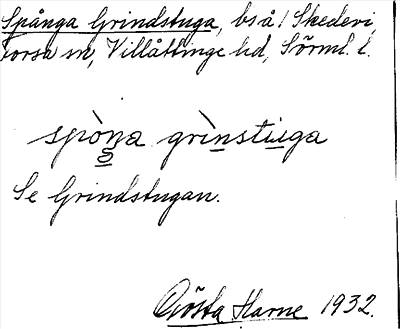 Spånga Grindstuga, bs å / Skedevi,
Forsa sn, Villåttinge hd, Sörml. l.
spòŋa grìnstuga
Se Grindstugan.
Gösta Harne 1932.